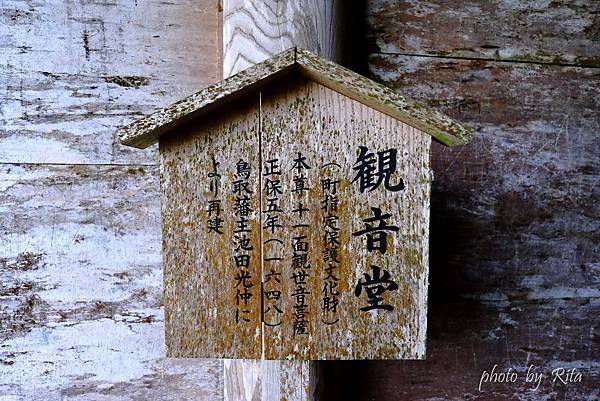 観音堂
（町指定保護文化財）
本尊十一面観世音菩薩
正保五年（一六四八）
鳥取藩主池田光仲に
より再建
photo by Rita